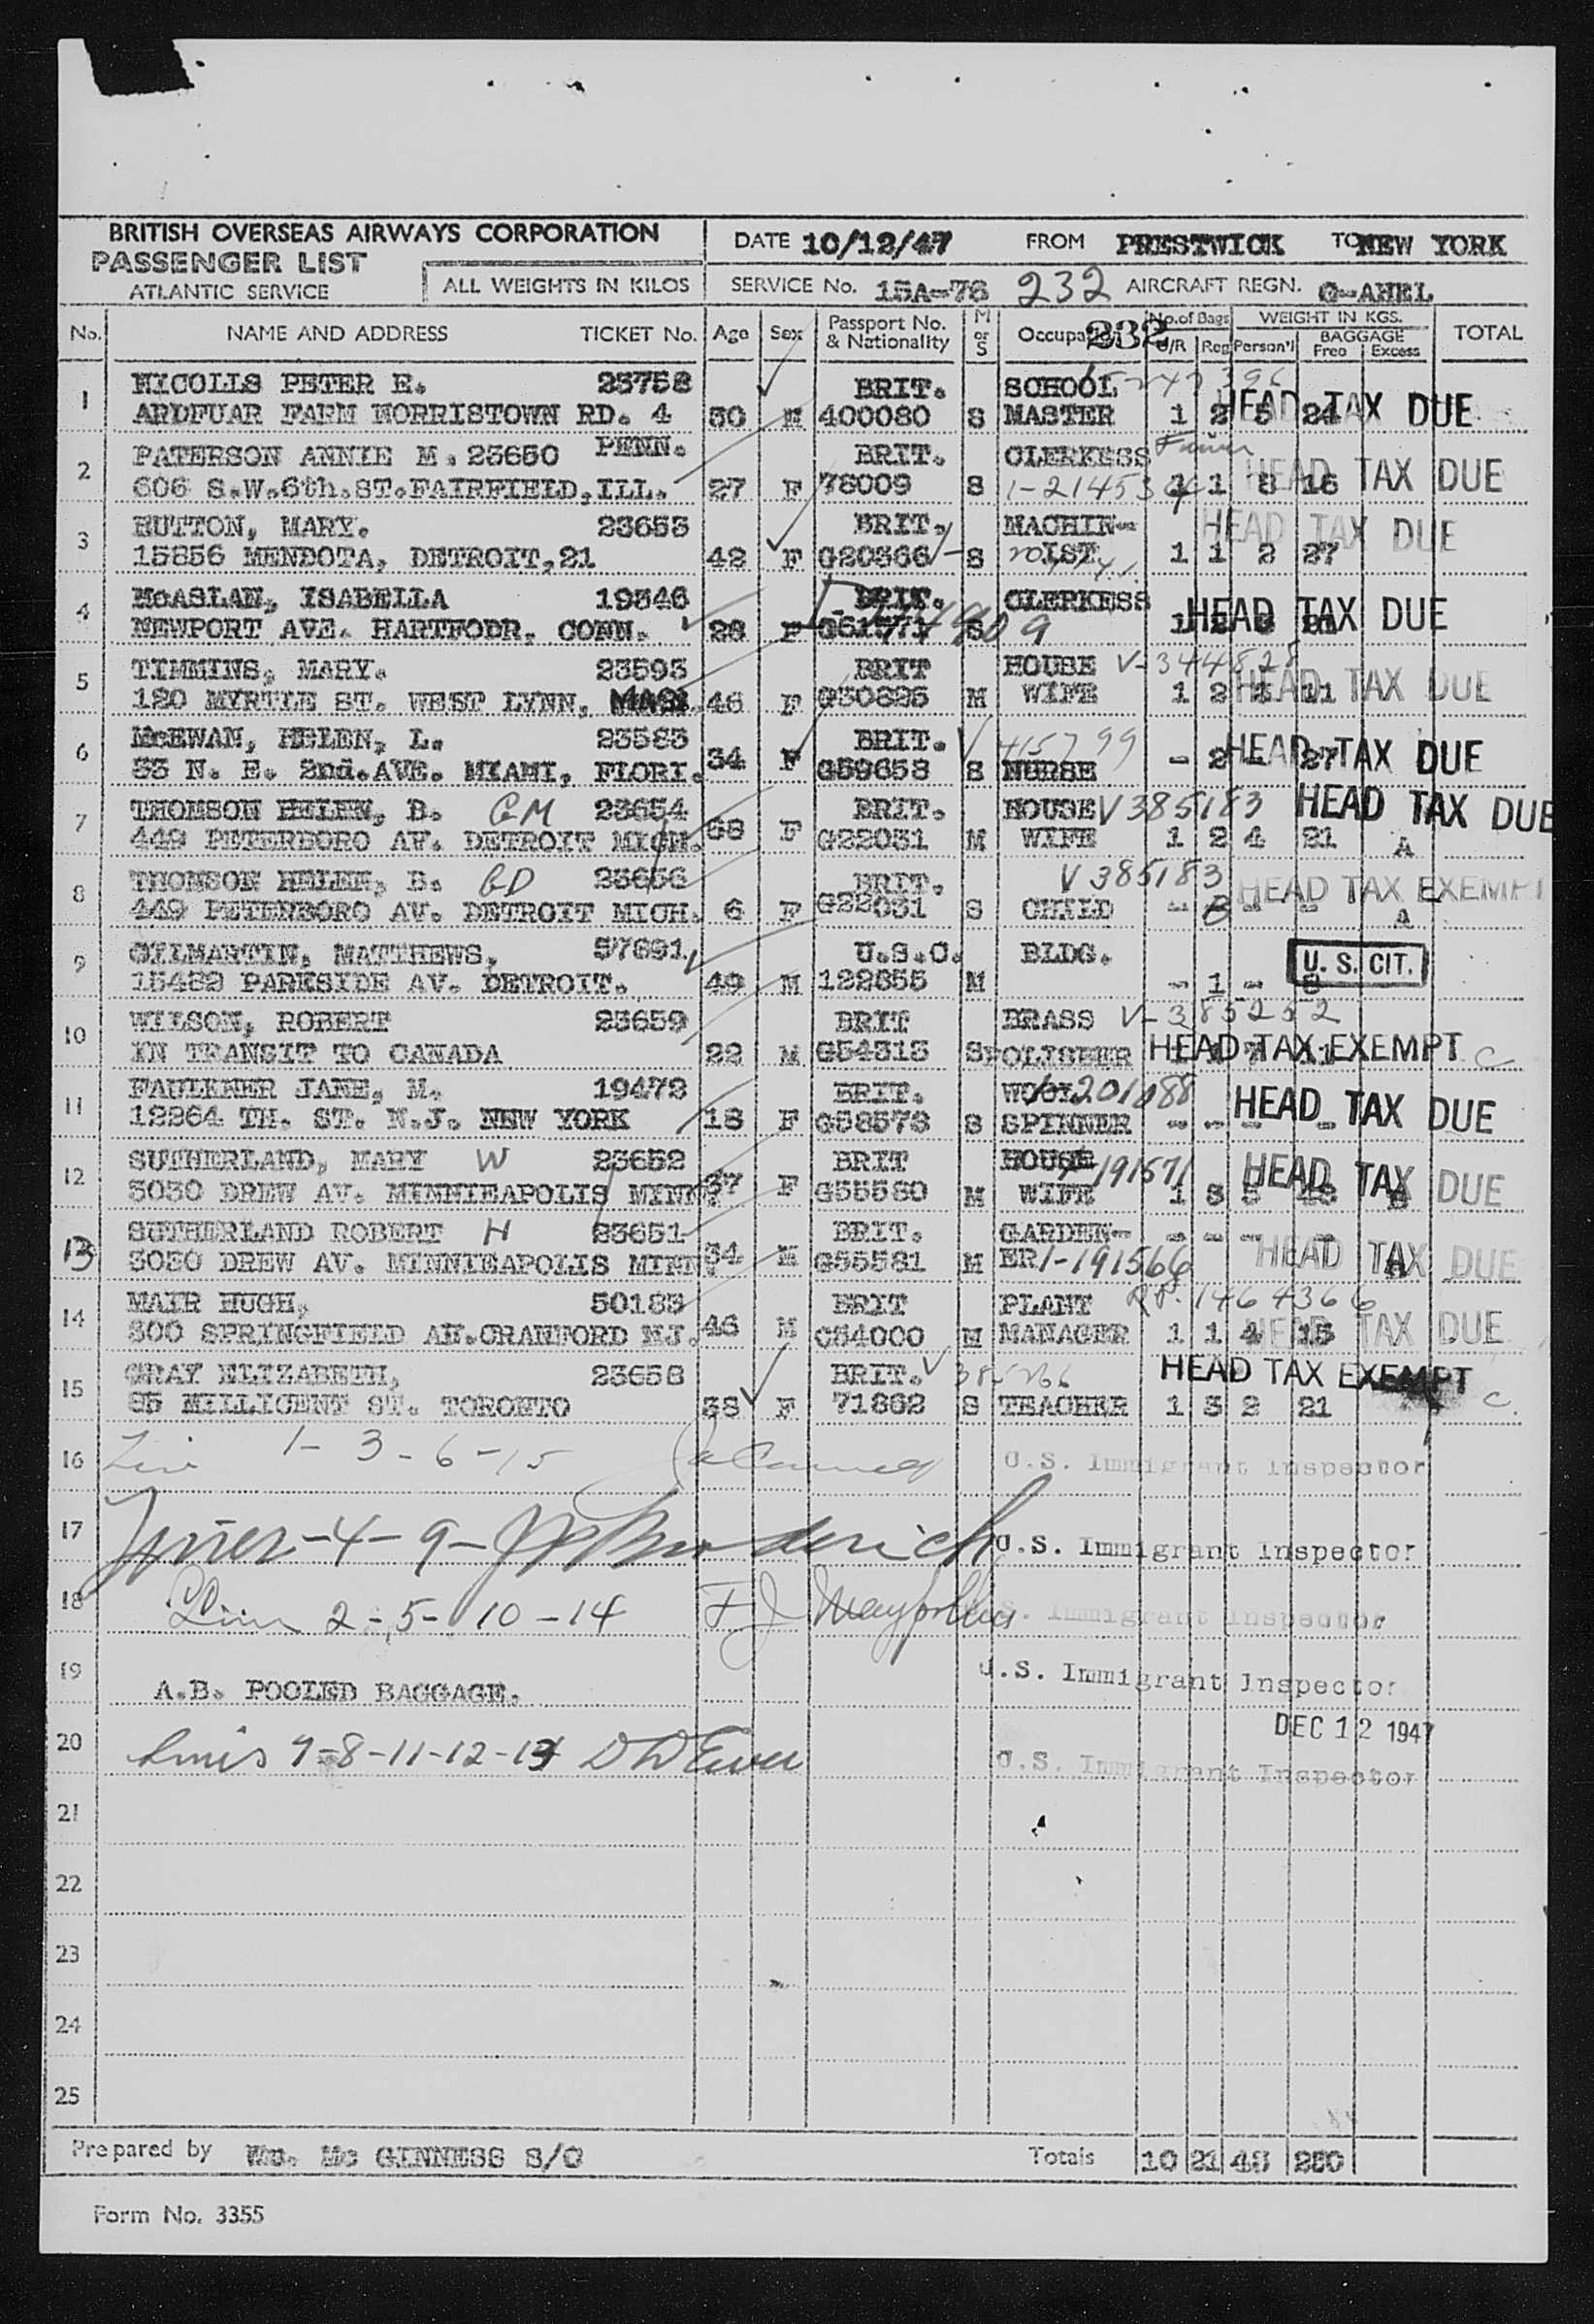 BRITISH OVERSEAS AIRWAYS CORPORATION
PASSENGER LIST
ATLANTIC SERVICE
ALL WEIGHTS IN KILOS
DATE 10/12/47 FROM PRESTWICK TO NEW YORK
SERVICE No. 15A-76 232 AIRCRAFT REGN. G-AHEL
No. NAME AND ADDRESS TICKET No. Age Sex Passport No. & Nationality M or S Occupation 232 No. of Bags U/R Reg WEIGHT IN KGS. Person'l BAGGAGE Free Excess TOTAL
1 NICOLLS PETER E. 23758 BRIT. SCHOOL
ARDFUAR FARM NORRISTOWN RD. 4 30 M 400080 S MASTER 1 2 5 24 HEAD TAX DUE
PENN.
2 PATERSON ANNIE M. 23650 BRIT. CLERKESS
606 S.W.6th.ST.FAIRFIELD,ILL. 27 F 78009 S 1 1 8 16 HEAD TAX DUE
3 HUTTON, MARY. 23653 BRIT. MACHIN-
15856 MENDOTA, DETROIT,21 42 F G20366 S IST 1 1 2 27 HEAD TAX DUE
4 McASLAN, ISABELLA 19346 BRIT. CLERKESS
NEWPORT AVE. HARTFODR, CONN. 28 F S HEAD TAX DUE
5 TIMMINS, MARY. 23593 BRIT HOUSE V-344828
120 MYRTLE ST. WEST LYNN, MASS. 46 F G30825 M WIFE 1 2 4 11 HEAD TAX DUE
6 McEWAN, HELEN, L. 23583 BRIT. V 415799
33 N. E. 2nd.AVE. MIAMI, FLORI. 34 F G59658 S NURSE - 2 - 27 HEAD TAX DUE
7 THOMSON HELEN, B. GM 23654 BRIT. HOUSE V385183 HEAD TAX DUE
449 PETERBORO AV. DETROIT MICH. 68 F G22031 M WIFE 1 2 4 21 A
8 THOMSON HELEN, B. GD 23656 BRIT. V385183
449 PETERBORO AV. DETROIT MICH. 6 F G22031 S CHILD - - - HEAD TAX EXEMPT A
9 GILMARTIN, MATTHEWS, 57691 U.S.C. BLDG. U.S. CIT.
15489 PARKSIDE AV. DETROIT. 49 M 122655 M - 1 - 8
10 WILSON, ROBERT 23659 BRIT BRASS V-385252
IN TRANSIT TO CANADA 22 M G54313 S POLISHER HEAD TAX EXEMPT C
11 FAULKNER JANE, M. 19472 BRIT.
12264 TH. ST. N.J. NEW YORK 18 F G58573 S SPINNER - - - - HEAD TAX DUE
12 SUTHERLAND, MARY W 23652 BRIT HOUSE
3030 DREW AV. MINNIEAPOLIS MINN. 37 F G55580 M WIFE 1 3 5 HEAD TAX DUE
13 SUTHERLAND ROBERT H 23651 BRIT. GARDEN- - - - -
3030 DREW AV. MINNIEAPOLIS MINN. 34 M G55581 M ER 1-191566 HEAD TAX DUE
14 MAIR HUGH, 50183 BRIT PLANT R.P. 1464366
300 SPRINGFIELD AN.CRANFORD NJ. 46 M C54000 M MANAGER 1 1 4 15 HEAD TAX DUE
15 GRAY ELIZABETH, 23658 BRIT. V 385266 HEAD TAX EXEMPT
85 MILLICENT ST. TORONTO 38 F 71862 S TEACHER 1 3 2 21 C.
16 1 - 3 - 6 - 15 U.S. Immigrant Inspector
17 4 - 9 - U.S. Immigrant Inspector
18 2 - 5 - 10 - 14 U.S. Immigrant Inspector
19 U.S. Immigrant Inspector
A.B. POOLED BAGGAGE.
DEC 12 1947
20 7-8-11-12-13 U.S. Immigrant Inspector
21
22
23
24
25
Prepared by Wm. Mc GINNESS S/O Totals 10 21 45 250
Form No. 3355